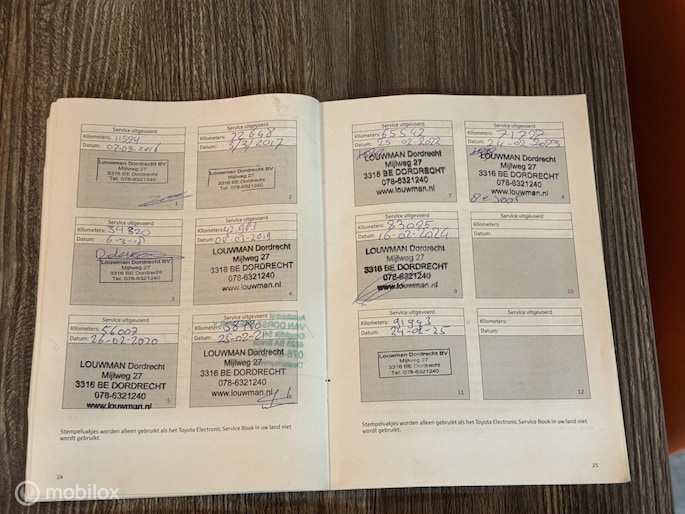 Service uitgevoerd
Kilometers: 11594
Datum: 02-03-2016
Louwman Dordrecht BV
Mijlweg 27
3316 BE Dordrecht
Tel. 078-6321240
1
Service uitgevoerd
Kilometers: 22648
Datum: 3/3/2017
Louwman Dordrecht BV
Mijlweg 27
3316 BE Dordrecht
Tel. 078-6321240
2
Service uitgevoerd
Kilometers: 34820
Datum: 6-3-18
Louwman Dordrecht BV
Mijlweg 27
3316 BE Dordrecht
Tel. 078-6321240
3
Service uitgevoerd
Kilometers: 42983
Datum: 01-03-2019
LOUWMAN Dordrecht
Mijlweg 27
3316 BE DORDRECHT
078-6321240
www.louwman.nl
4
Service uitgevoerd
Kilometers: 56007
Datum: 26-02-2020
LOUWMAN Dordrecht
Mijlweg 27
3316 BE DORDRECHT
078-6321240
www.louwman.nl
5
Service uitgevoerd
Kilometers:
Datum: 25-02-21
LOUWMAN Dordrecht
Mijlweg 27
3316 BE DORDRECHT
078-6321240
www.louwman.nl
6
Stempelvakjes worden alleen gebruikt als het Toyota Electronic Service Book in uw land niet
wordt gebruikt.
24
Service uitgevoerd
Kilometers: 65542
Datum: 25-02-2022
LOUWMAN Dordrecht
Mijlweg 27
3316 BE DORDRECHT
078-6321240
www.louwman.nl
7
Service uitgevoerd
Kilometers: 71797
Datum: 24-02-2023
LOUWMAN Dordrecht
Mijlweg 27
3316 BE DORDRECHT
078-6321240
www.louwman.nl
8
Service uitgevoerd
Kilometers: 83095
Datum: 16-02-2024
LOUWMAN Dordrecht
Mijlweg 27
3316 BE DORDRECHT
078-6321240
www.louwman.nl
9
Service uitgevoerd
Kilometers:
Datum:
10
Service uitgevoerd
Kilometers: 91993
Datum: 24-02-25
Louwman Dordrecht BV
Mijlweg 27
3316 BE Dordrecht
Tel. 078-6321240
11
Service uitgevoerd
Kilometers:
Datum:
12
Stempelvakjes worden alleen gebruikt als het Toyota Electronic Service Book in uw land niet
wordt gebruikt.
25
mobilox